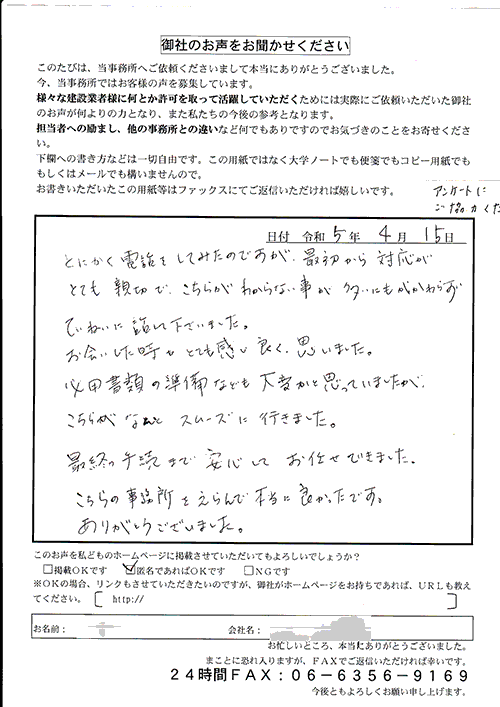 御社のお声をお聞かせください
このたびは、当事務所へご依頼くださいまして本当にありがとうございました。
今、当事務所ではお客様の声を募集しています。
様々な建設業者様に何とか許可を取って活躍していただくためには実際にご依頼いただいた御社
のお声が何よりの力となり、また私たちの今後の参考となります。
担当者への励まし、他の事務所との違いなど何でもありですのでお気づきのことをお寄せくださ
い。
下欄への書き方などは一切自由です。この用紙ではなく大学ノートでも便箋でもコピー用紙でも
もしくはメールでも構いませんので、
お書きいただいたこの用紙等はファックスにてご返信いただければ嬉しいです。
アンケートに
ご協力くだ
日付 令和 5年 4月 15日
とにかく電話をしてみたのですが、最初から対応が
とても親切で、こちらがわからない事が多いにもかかわらず
ていねいに話して下さいました。
お会いした時もとても感じ良く、思いました。
必用書類の準備なども大変かと思っていましたが、
こちらがなんと スムーズに行きました。
最終の手続まで安心して お任せできました。
こちらの事務所をえらんで本当に良かったです。
ありがとうございました。
このお声を私どものホームページに掲載させていただいてもよろしいでしょうか?
□掲載OKです ☑匿名であればOKです □NGです
※OKの場合、リンクもさせていただきたいのですが、御社がホームページをお持ちであれば、URLも教え
てください。[ http:// ]
お名前: 会社名:
お忙しいところ、本当にありがとうございました。
まことに恐れ入りますが、FAXでご返信いただければ幸いです。
24時間FAX:06-6356-9169
今後ともよろしくお願い申し上げます。